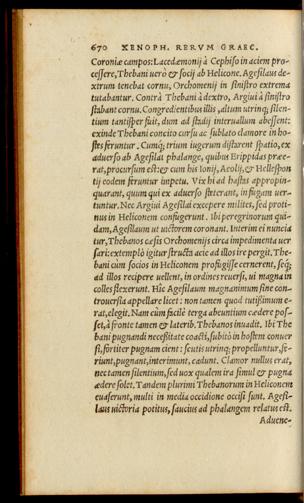 670 XENOPH. RERVM GRAEC.
Coroniæ campos: Lacedæmonij à Cephiso in aciem pro-
cessere, Thebani uerò & socij ab Helicone. Agesilaus de-
xtrum tenebat cornu, Orchomenij in sinistro extrema
tutabantur. Contrà Thebani à dextro, Argiui à sinistro
stabant cornu. Congredientibus illis, altum utrinq; silen-
tium tantisper fuit, dum ad stadij interuallum abessent:
exinde Thebani concito cursu ac sublato clamore in ho-
stes feruntur. Cumq; trium iugerum distarent spatio, ex
aduerso ab Agesilai phalange, quibus Erippidas præe-
rat, procursum est: & cum his Ionij, Aeolij, & Hellespon
tij eodem feruntur impetu. Vix bi ad hastes appropin-
quarant, quum qui ex aduerso stetterant, in fugam uer-
tuntur. Nec Argiui Agesilai excepere milites, sed proti-
nus in Heliconem confugerunt. Ibi peregrinorum qui-
dam, Agesilaum ut uictorem coronant. Interim ei nuncia
tur, Thebanos cæsis Orchomenijs circa impedimenta uer
sari: extemplò igitur structa acie ad illos ire pergit. The-
bani cùm socios in Heliconem profugisse cernerent, seq;
ad illos recipere uellent, in ordines reuersi, ui magna in
colles flexerunt. Hîc Agesilaum magnanimum sine con-
trouersia appellare licet: non tamen quod tutissimum e-
rat, elegit. Nam cùm facilè terga abeuntium cædere pos-
set, à fronte tamen & laterib. Thebanos inuadit. Ibi The
bani pugnandi necessitate coacti, subitò in hostem conuer
si, fortiter pugnam cient: scutis utrinq; propelluntur, fe-
riunt, pugnant, interimunt, cadunt. Clamor nullus erat,
nec tamen silentium, sed uox qualem ira simul & pugna
ædere solet. Tandem plurimi Thebanorum in Heliconem
euaserunt, multi in media occidione occisi sunt. Agesi-
laus uictoria potitus, saucius ad phalangem relatus est.
Aduene-